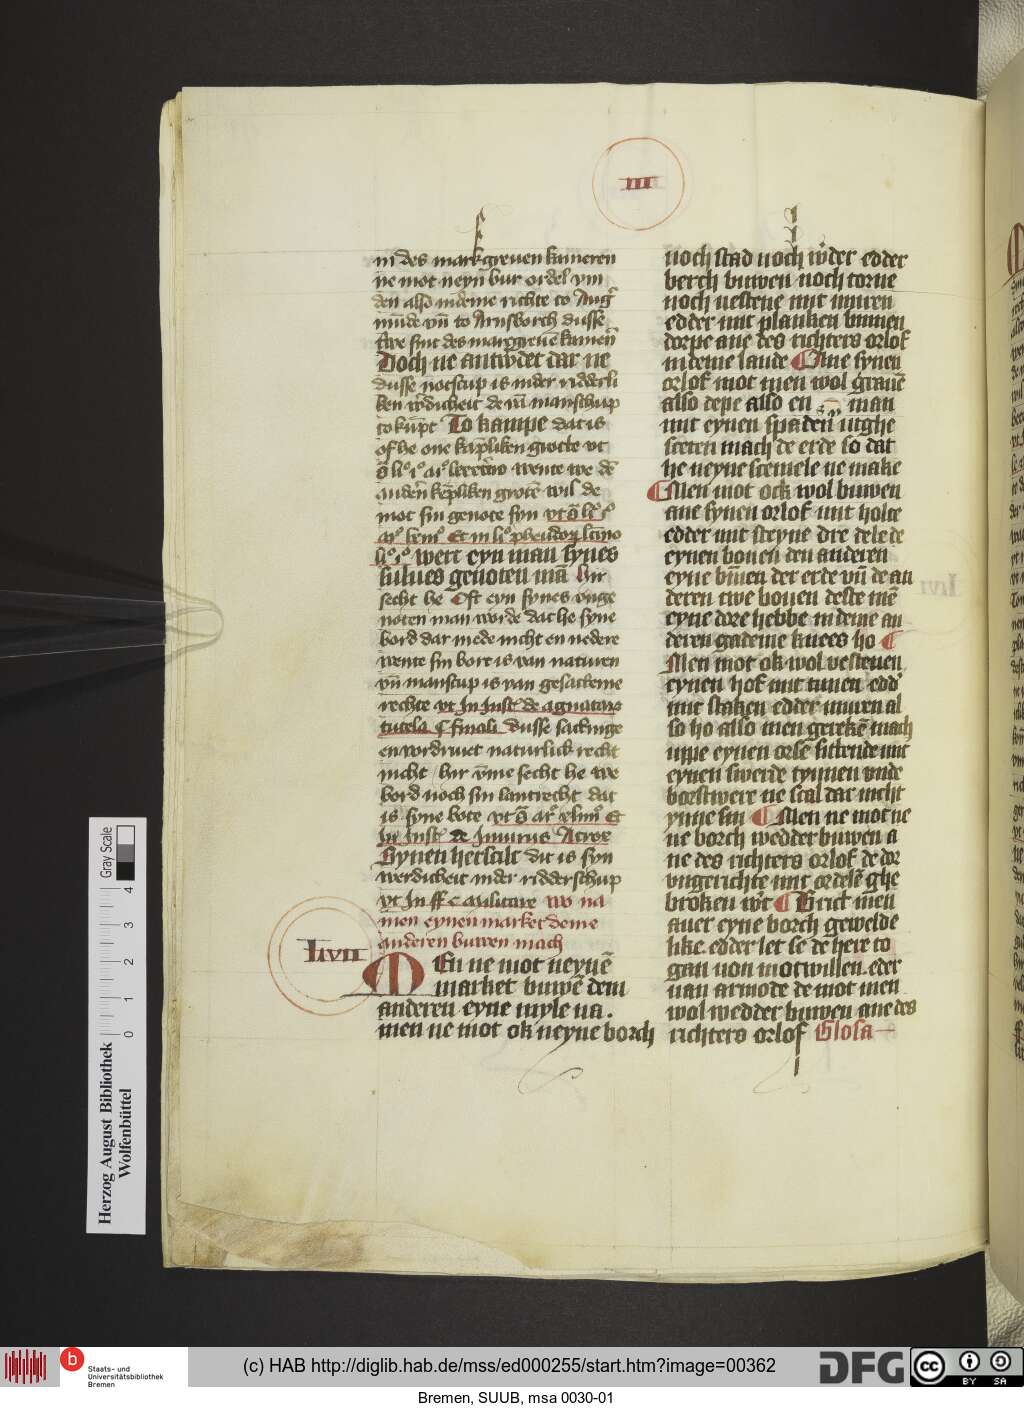 III
in des markgreuen kameren
ne mot neyn bur ordel vin
den also in deme richte to Aug
munde vnd to Arnsborch dusse
twe sint des marggreuen kamern
Doch ne antwerdet dar ne
dusse notscup is in der ridderli
ken werdicheit de m manschup
to kumpt To kampe dat is
of he one kampliken grotte vt
anderen kempliken groten wil de
mot sin genote syn vt
wert eyn man synes
sulues genoten man hir
secht he Oft eyn synes vnge
noten man worde dat he syne
bord dar mede nicht en nedere
wente sin bort is van naturen
vnd manscup is van gesatkeme
rechte vt In Inst de agnatorum
tutela § finali dusse sattinge
en vordruct naturlick recht
nicht / hir vmme secht he we
bord noch sin lantrecht dat
is syne bote vt
In Inst de Iniuriis Atroe
Synen herscilt dit is syn
werdicheit in der ridderschup
vt In ff c militare wo na
men eynen market deme
anderen buwen mach
Lxvii
MEn ne mot neynē
market buwē dem
anderen eyne myle na .
men ne mot ok neyne borch
noch stad noch werder edder
berch buwen noch torne
noch uestene mit muren
edder mit planken binnen
dorpe ane des richters orlof
in deme lande Ane synen
orlof mot men wol grauē
also depe also en man
mit eynen spaden uighe
sceten mach de erde so dat
he neyne scemele ne make
Men mot ock wol buwen
ane synen orlof mit holte
edder mit steyne dre dele de
eynen bouen den anderen
eyne bīnen der erde vn̄ de an
deren twe bouen deste mē
eyne dore hebbe in deme an
deren gademe knees ho
Men mot ok wol uestenen
eynen hof mit tunen edd'
mit staken edder muren al
so ho also men gerekē mach
uppe eynen orse sittende mit
eynen swerde tynnen vnde
borstwere ne scal dar nicht
ynne sin Men ne mot ne
ne borch wedder buwen a
ne des richters orlof de dor
vngerichte mit ordelē ghe
broken wert Brict men
auer eyne borch gewelde
like. edder let se de here to
gan von motwillen. eder
uan armode de mot men
wol wedder buwen ane des
richters orlof Glosa
Gray Scale
0 1 2 3 4
Herzog August Bibliothek
Wolfenbüttel
b
Staats- und
Universitätsbibliothek
Bremen
(c) HAB http://diglib.hab.de/mss/ed000255/start.htm?image=00362
DFG
cc BY SA
Bremen, SUUB, msa 0030-01